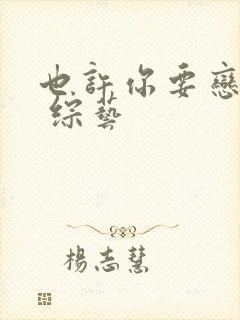 也許你要戀
綜藝
楊志慧